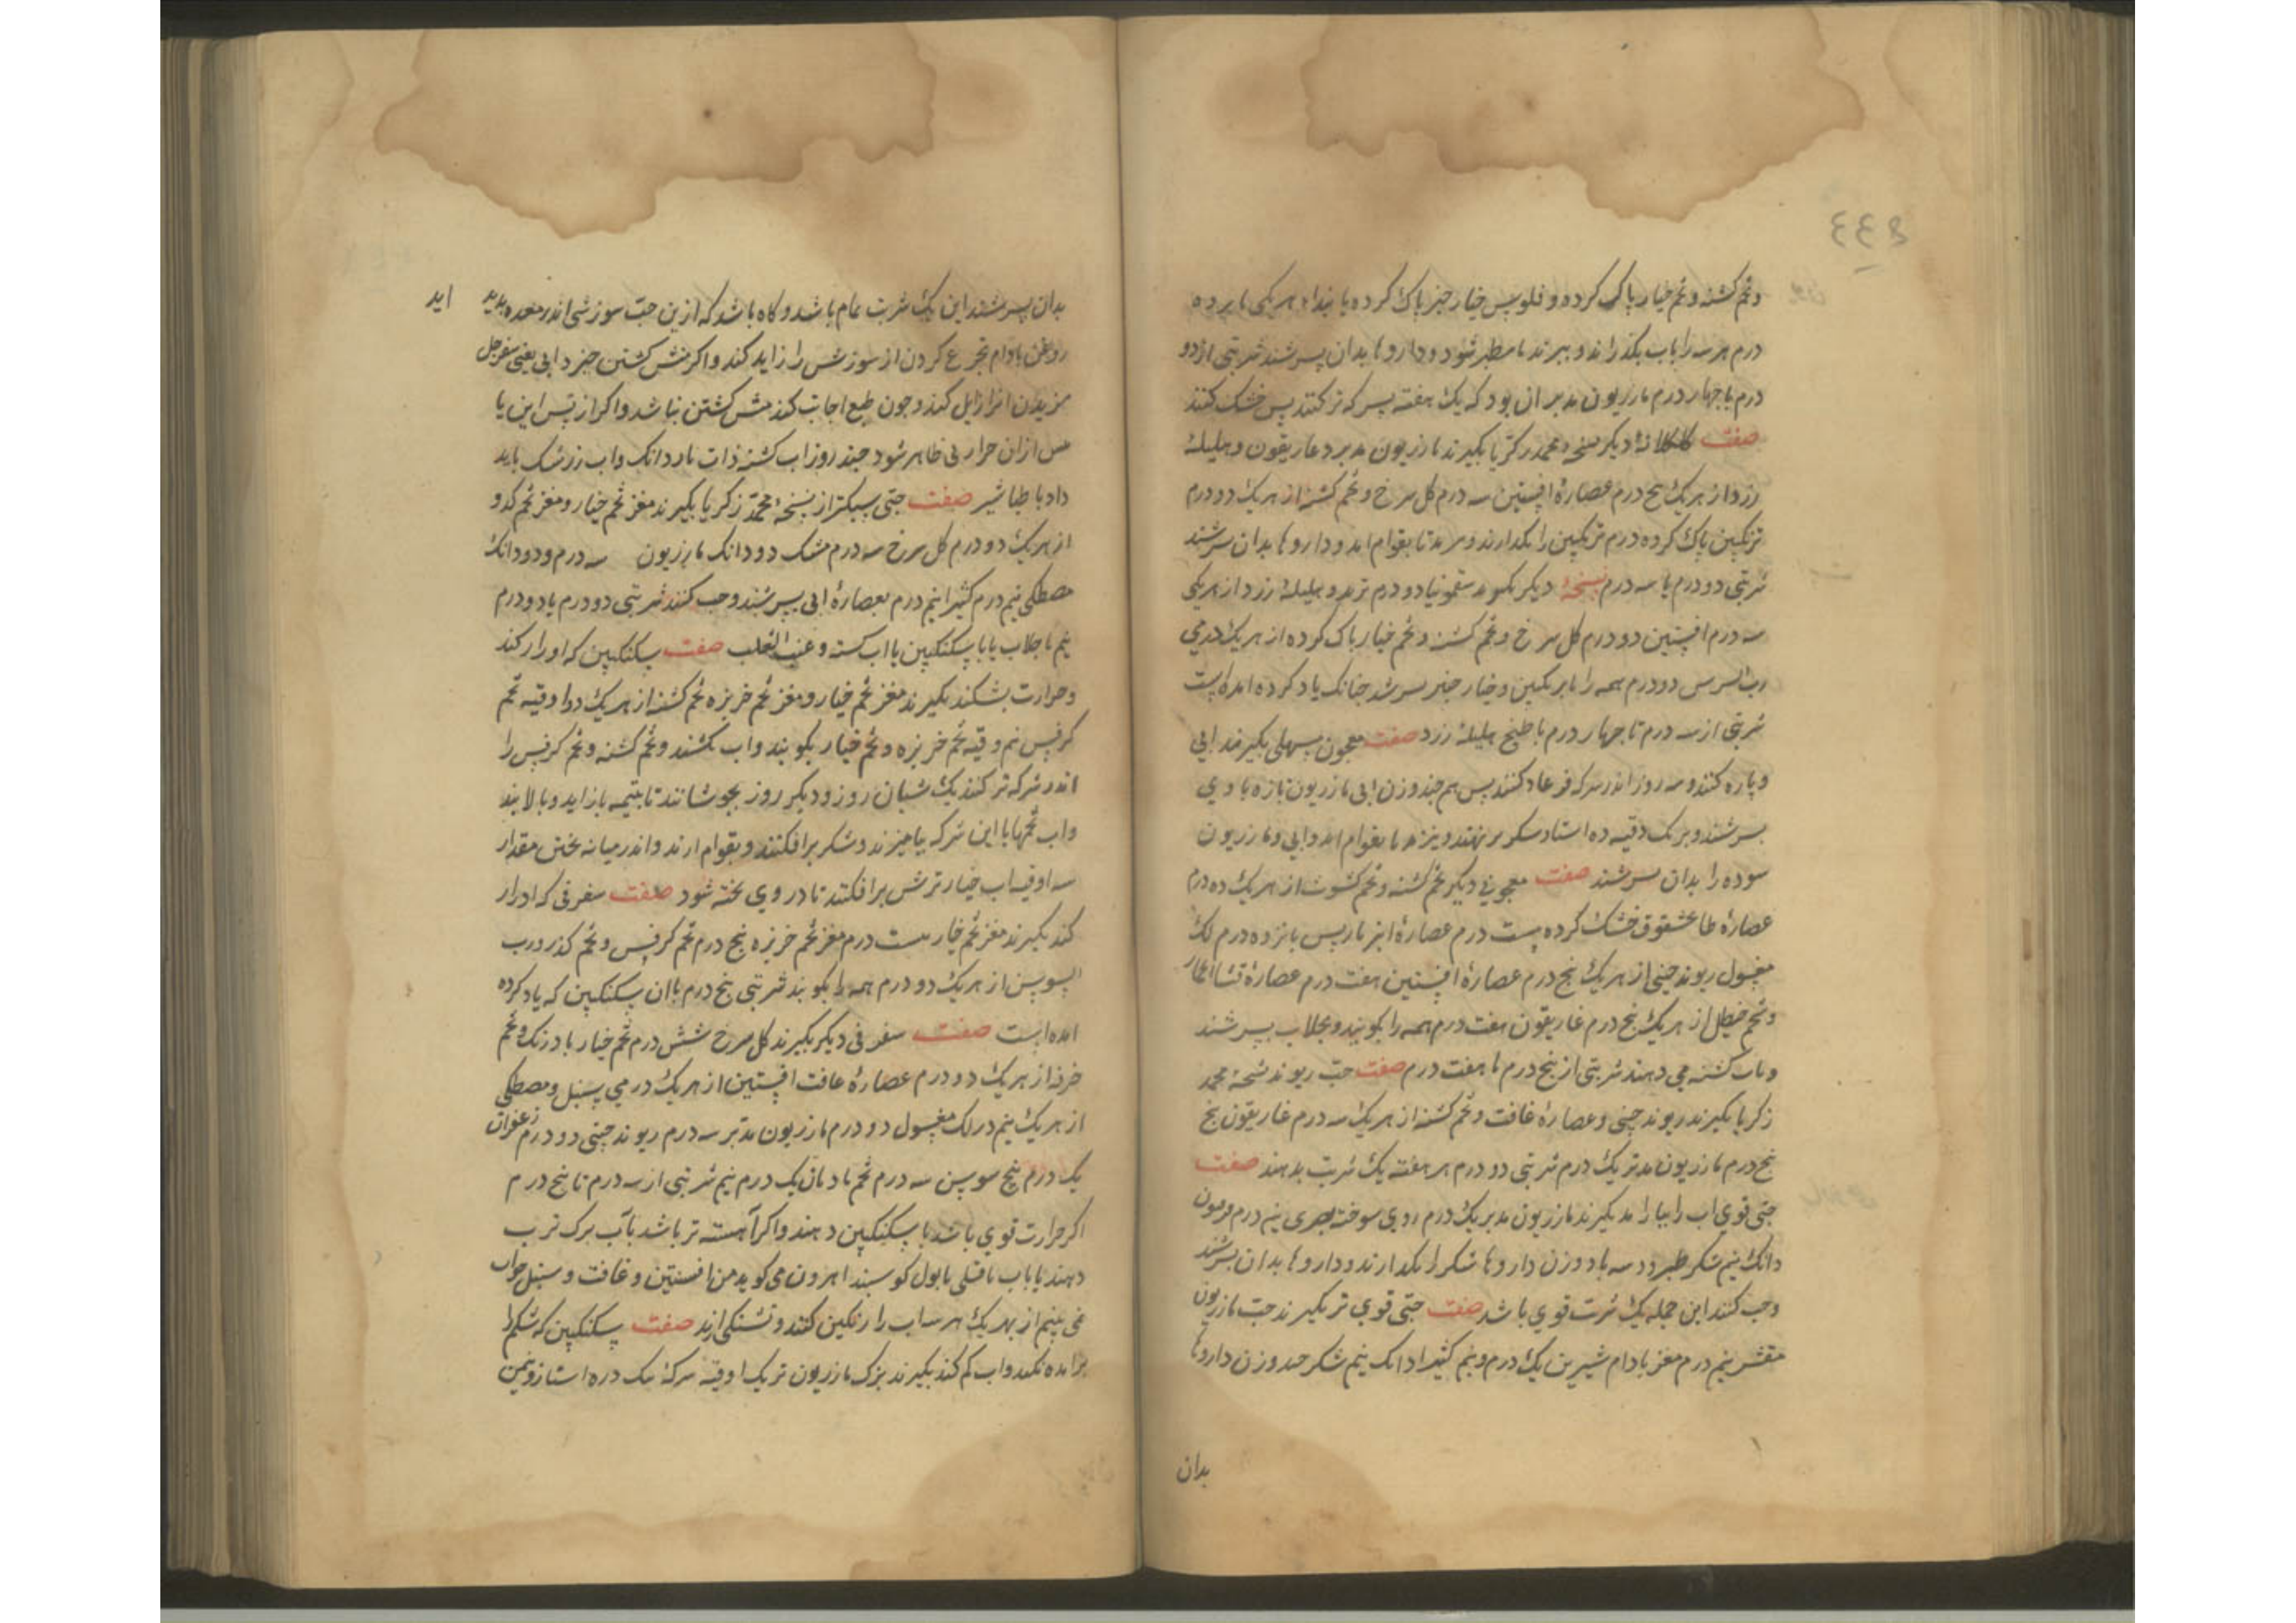 وتخم کشنه و تخم خیار پاک کرده و فلوس خیار جنبر پاک کرده با بیدا هر یکی
درم هر سه را باب بکذرانند و ببرند تا سطبر شود و داروها بدان بسرشند شربتی از دو
درم تا جهار درم مازریون مدبر ان بود که یک هفته بسرکه تر کنند پس خشک کنند
صفت کلکلانهٔ دیکر نسخهٔ محمد زکریا بکیرند مازریون مدبر و غاریقون و هلیلهٔ
زرد از هر یک پنج درم عصارهٔ افسنتین سه درم کل سرخ و تخم کشنه از هر یک دو درم
ترنکبین پاک کرده درم ترنکبین را بکدازند و ببرند تا بقوام اید و داروها بدان سرشند
شربتی دو درم یا سه درم نسخهٔ دیکر بکیرند سقمونیا دو درم تربد و هلیلهٔ زرد از هر یکی
سه درم افسنتین دو درم کل سرخ و تخم کشنه و تخم خیار پاک کرده از هر یک درمی
رب السوس دو درم همه را بترنکبین و خیار جنبر بسرشند جنانک یاد کرده امده است
شربتی از سه درم تا جهار درم با طبیخ هلیلهٔ زرد صفت معجون مسهلی بکیرند ابی
و پاره کنند و سه روز اندر سرکه فرغار کنند پس هم جند وزن ابی مازریون تازه با وی
بسرشند و بر یک وقیه ده استار شکر برنهند و بپزند تا بقوام اید و ابی و مازریون
سوده را بدان بسرشند صفت معجونی دیکر تخم کشنه و تخم کشوث از هر یک ده درم
عصارهٔ طلخشقوق خشک کرده بیست درم عصارهٔ انبرباریس پانزده درم لک
مغسول ریوند جینی از هر یک پنج درم عصارهٔ افسنتین هفت درم عصارهٔ قثاالحمار
و تخم حنظل از هر یک پنج درم غاریقون هفت درم همه را بکوبند و بجلاب بسرشند
و باب کشنه می دهند شربتی از پنج درم تا هفت درم صفت حب ریوند نسخهٔ محمد
زکریا بکیرند ریوند جینی و عصارهٔ غافت و تخم کشنه از هر یک سه درم غاریقون پنج
پنج درم مازریون مدبر یک درم شربتی دو درم هر هفته یک شربت بدهند صفت
حبی قوی اب را بیاراند بکیرند مازریون مدبر یک درم روی سوخته بصری نیم درم فرفیون
دانک نیم شکر طبرزد سه بار دو وزن داروها شکر را بکدازند و داروها بدان بسرشند
و حب کنند این جمله یک شربت قوی باشد صفت حبی قوی تر بکیرند حب مازریون
مقشر نیم درم مغز بادام شیرین یک درم و نیم کتیرا دانک نیم شکر جند وزن داروها
بدان
بدان بسرشند این یک شربت تمام باشد و کاه باشد که ازین حب سوزشی اندر معده پدید اید
روغن بادام تجرع کردن از سوزش را زاید کند و اکر منش کشتن خیزد ابی یعنی سفرجل
مزیدن انرا زایل کند و جون طبع اجابت کند منش کشتن نباشد و اکر از پس این یا
پس ازان حرارتی ظاهر شود جند روز اب کشنه ذات باردانک و اب زرشک باید
داد با طباشیر صفت حبی سبکتر از نسخهٔ محمد زکریا بکیرند مغز تخم خیار و مغز تخم کدو
از هر یک دو درم کل سرخ سه درم مشک دو دانک مازریون سه درم و دو دانک
مصطکی نیم درم کتیرا نیم درم بعصارهٔ ابی بسرشند و حب کنند شربتی دو درم یا دو درم
نیم با جلاب یا با سکنکبین یا اب کسنه و عنب الثعلب صفت سکنکبین که ادرار کند
و حرارت بشکند بکیرند مغز تخم خیار و مغز تخم خربزه تخم کشنه از هر یک دو اوقیه تخم
کرفس نیم وقیه تخم خربزه و تخم خیار بکوبند و اب بکشند و تخم کشنه و تخم کرفس را
اندر سرکه تر کنند یک شبان روز و دیکر روز بجوشانند تا بنیمه بازاید و بپالایند
و اب تخمها با این سرکه بیامیزند و شکر برافکنند و بقوام ارند و اندر میانه پختن مقدار
سه اوقیه اب خیار ترش برافکنند تا در وی پخته شود صفت سفوفی که ادرار
کند بکیرند مغز تخم خیار بیست درم مغز تخم خربزه پنج درم تخم کرفس و تخم کذر و رب
السوس از هر یک دو درم همه را بکوبند شربتی پنج درم با ان سکنکبین که یاد کرده
امده است صفت سفوفی دیکر بکیرند کل سرخ شش درم تخم خیار بادرنک و تخم
خرفه از هر یک دو درم عصارهٔ غافت افسنتین از هر یک درمی سنبل و مصطکی
از هر یک نیم درم لک مغسول دو درم مازریون مدبر سه درم ریوند جینی دو درم زعفران
یک درم بیخ سوسن سه درم تخم بادیان یک درم نیم شربتی از سه درم تا پنج درم
اکر حرارت قوی باشد با سکنکبین دهند و اکر آهسته تر باشد بآب برک ترب
دهند یا باب باقلی یا بول کوسبند اهرون می کوید من افسنتین و غافت و سنبل صواب
نمی بینم از بهر یک هر سه اب را رنکین کنند و تشنکی ارند صفت سکنکبین که شکم را
برامده بکند و اب کم کند بکیرند برک مازریون تر یک اوقیه سرکهٔ یک دره استار و نیمن